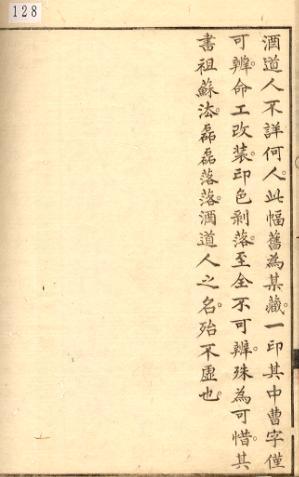 128
酒道人不詳何人。此幅舊為某藏。一印其中曹字僅
可辨。命工改装。印色剥落。至全不可辨。殊為可惜。其
書祖蘇法。磊磊落落。酒道人之名。殆不虚也。